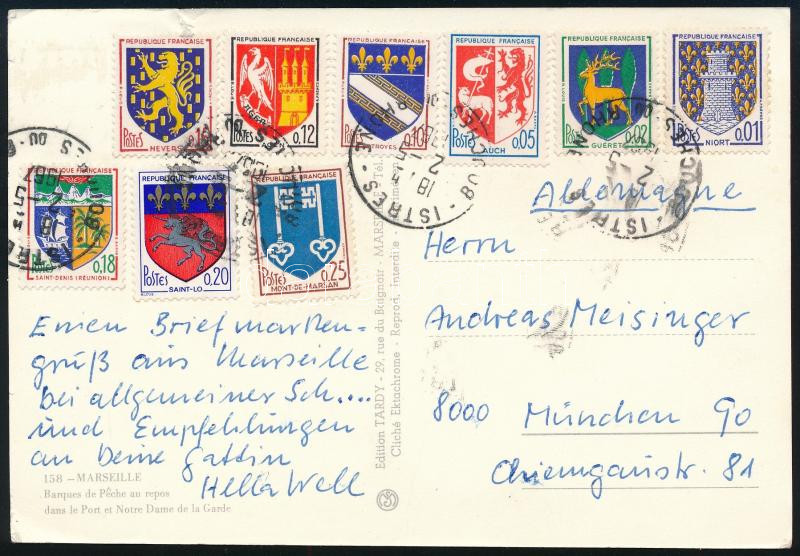 REPUBLIQUE FRANÇAISE
POSTES
NEVERS
REPUBLIQUE FRANÇAISE
POSTES
AGEN
0,12
REPUBLIQUE FRANÇAISE
POSTES
0,10
TROYES
REPUBLIQUE FRANÇAISE
POSTES
0,05
AUCH
REPUBLIQUE FRANÇAISE
POSTES
0,02
GUÉRET
REPUBLIQUE FRANÇAISE
POSTES
0,01
NIORT
REPUBLIQUE FRANÇAISE
POSTES
0,18
SAINT-DENIS (RÉUNION)
REPUBLIQUE FRANÇAISE
POSTES
0,20
SAINT-LO
REPUBLIQUE FRANÇAISE
POSTES
0,25
MONT-DE-MARSAN
ISTRES
18
Einen Briefmarken-
gruß aus Marseille
bei allgemeiner Sch....
und Empfehlungen
an Deine Gattin
Hella Well
158 - MARSEILLE
Barques de Pêche au repos
dans le Port et Notre Dame de la Garde
Edition TARDY - 29, rue du Baignoir - MARSEILLE
Cliché Ektachrome - Reprod. interdite
Allemagne
Herrn
Andreas Meisinger
8000 München 90
Chiemgaustr. 81